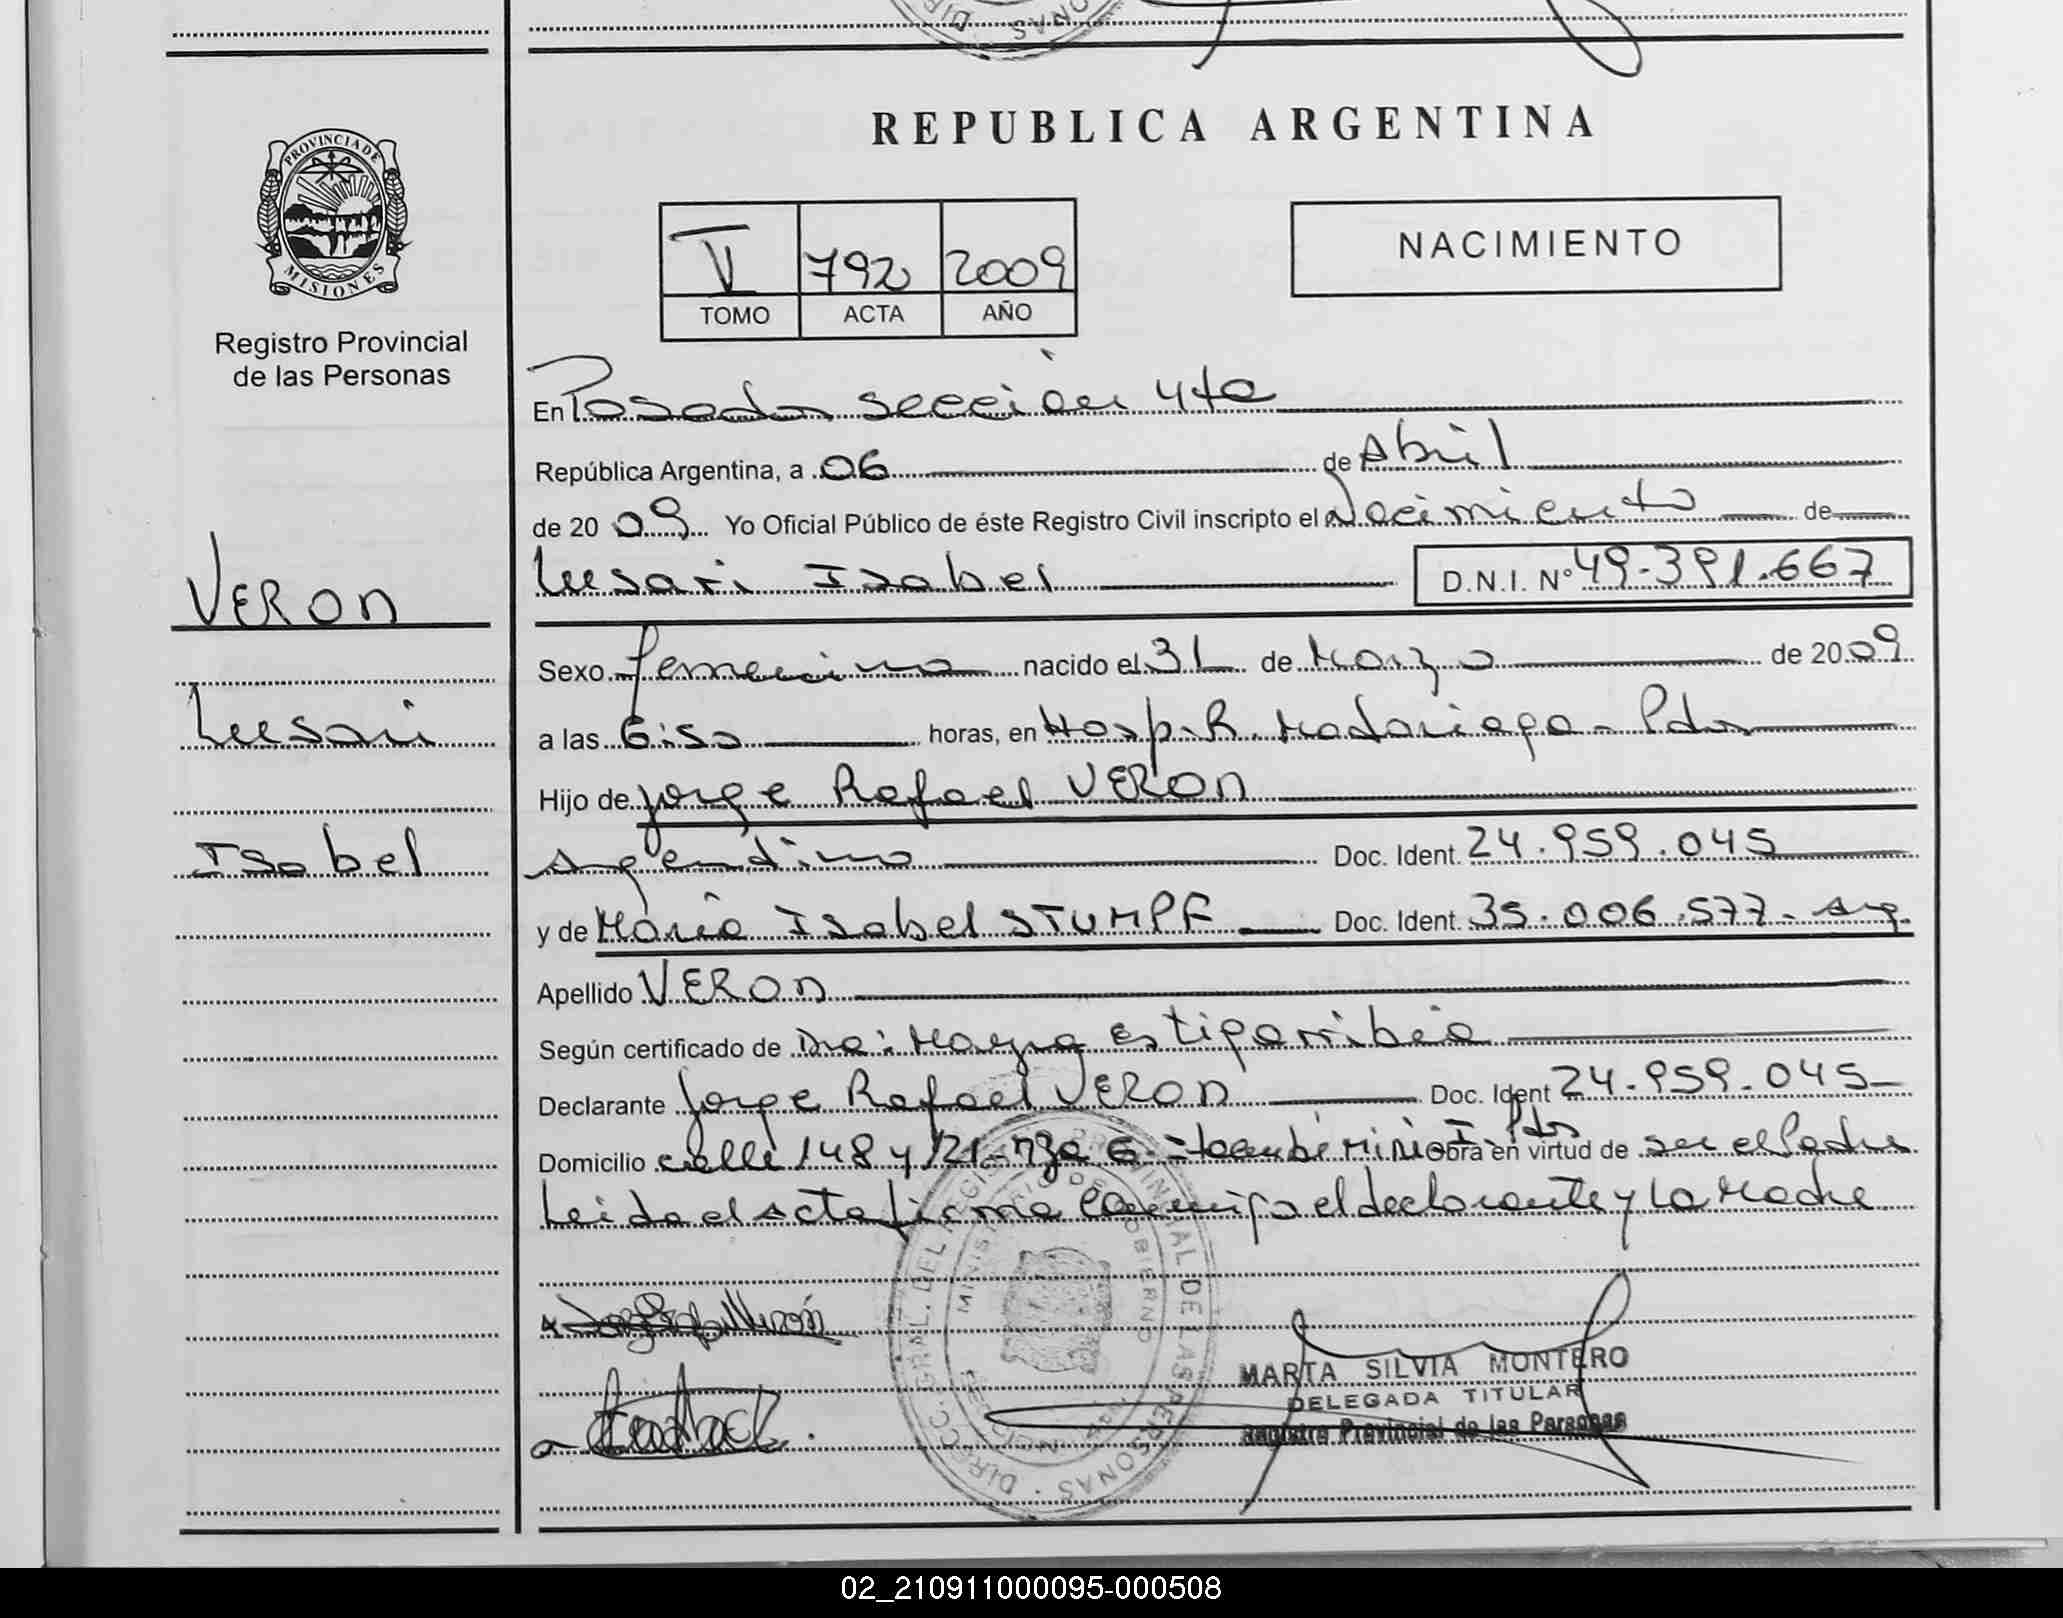 REPUBLICA ARGENTINA
PROVINCIA DE MISIONES
Registro Provincial
de las Personas
V 792 2009
TOMO ACTA AÑO
NACIMIENTO
En Posadas sección 4ta
República Argentina, a 06 de Abril
de 2009 Yo Oficial Público de éste Registro Civil inscripto el Nacimiento de
Isabel D.N.I. Nº 49.391.667
VERON
Isabel
Sexo femenino nacido el 31 de Marzo de 2009
a las 6:50 horas, en Hosp. R. Madariaga - Pdas
Hijo de Jorge Rafael VERON
Argentino Doc. Ident. 24.959.045
y de María Isabel STUMPF Doc. Ident. 35.006.577 - Arg.
Apellido VERON
Según certificado de Dra: Mayra Estigarribia
Declarante Jorge Rafael VERON Doc. Ident 24.959.045
Domicilio calle 148 y 121 - Mza 6 - Itaembé Miní - Pdas obra en virtud de ser el Padre
Leida el acta firma conmigo el declarante y la Madre
DIRECC. GRAL. DEL REGISTRO PROVINCIAL DE LAS PERSONAS
MINISTERIO DE GOBIERNO
MARTA SILVIA MONTERO
DELEGADA TITULAR
Registro Provincial de las Personas
02_210911000095-000508